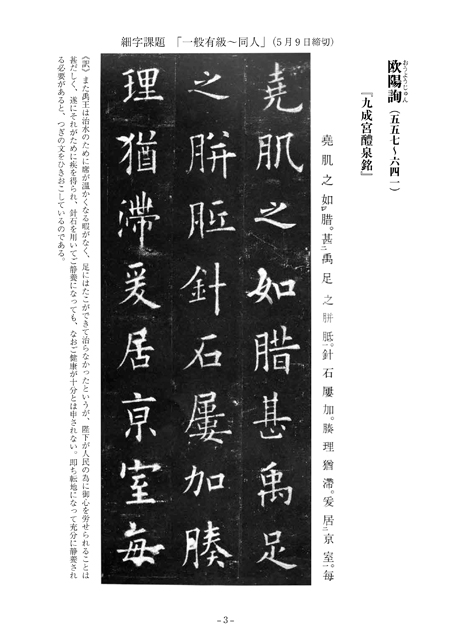 細字課題 「一般有級～同人」(5月9日締切)
欧陽詢(五五七～六四一)
おうようじゅん
『九成宮醴泉銘』
堯肌之如腊。甚二禹足之胼胝一。針石屢加。腠理猶滞。爰居二京室一。毎
堯肌之如腊甚禹足
之胼胝針石屢加腠
理猶滯爰居京室毎
《訳》また禹王は治水のために席が温かくなる暇がなく、足にはたこができて治らなかったというが、陛下が人民の為に御心を労せられることは
甚だしく、遂にそれがために疾を得られ、針石を用いてご静養になっても、なおご健康が十分とは申されない。即ち転地になって充分に静養され
る必要があると、つぎの文をひきおこしているのである。
- 3 -